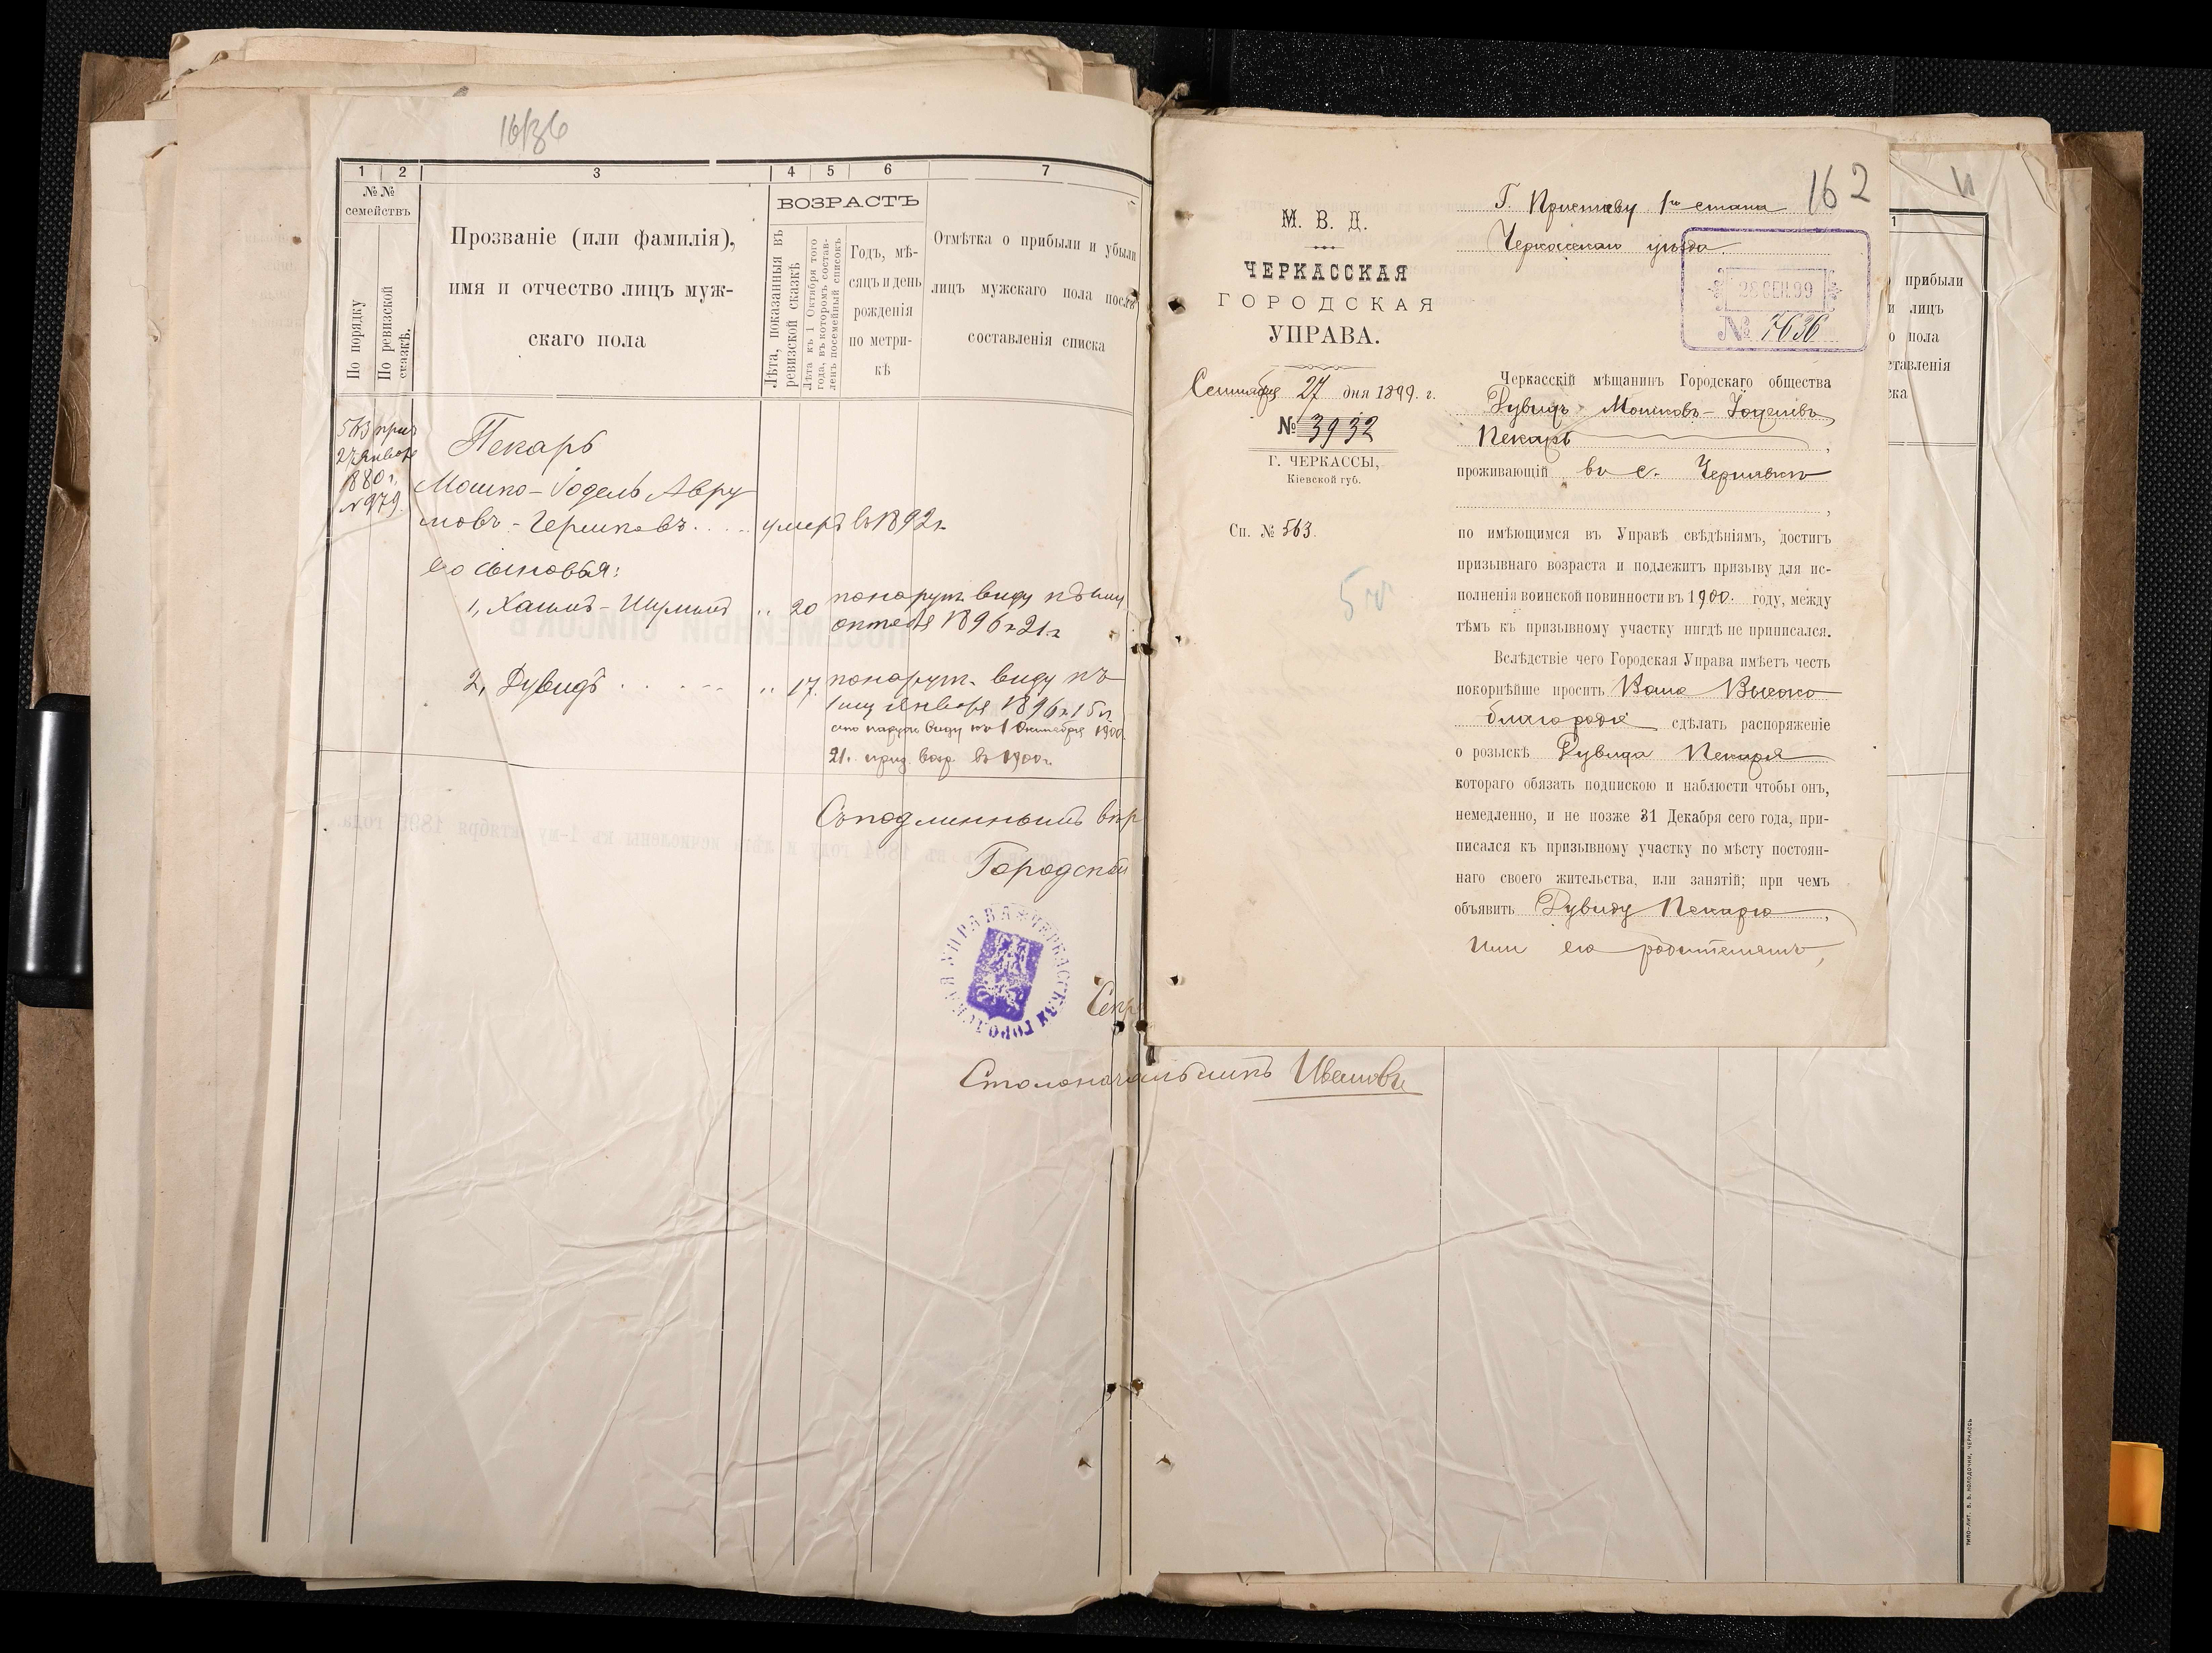 16136
1 2 3 4 5 6 7
№ №
семействъ
По порядку
По ревизской
сказкѣ.
Прозваніе (или фамилія),
имя и отчество лицъ муж-
скаго пола
ВОЗРАСТЪ
Лѣта, показанныя въ
ревизской сказкѣ
Лѣта къ 1 Октября того
года, въ которомъ состав-
ленъ посемейный списокъ
Годъ, мѣ-
сяцъ и день
рожденія
по метри-
кѣ
Отмѣтка о прибыли и убыли
лицъ мужскаго пола послѣ
составленія списка
563 прич
27 Января
1880 г.
№ 979.
Пекарь
Мошко-Іодель Авру
мовъ-Гершковъ
умеръ въ 1892 г.
его сыновья:
1, Хаимъ-Шулимъ " 20
по наружн. виду къ 1 му
октября 1896 г. 21 г.
2, Дувидъ " 17.
по наружн. виду къ
1 му Января 1896 г. 15 л.
по наружн. виду къ 1 Октября 1900
21. приз. возр. въ 1900 г.
Съ подлиннымъ вѣр
Городской
ЧЕРКАССКАЯ ГОРОДСКАЯ УПРАВА
Секр
Столоначальникъ Ивановъ
162
М. В. Д.
ЧЕРКАССКАЯ
ГОРОДСКАЯ
УПРАВА.
Сентября 27 дня 1899. г.
№ 3932
Г. ЧЕРКАССЫ,
Кіевской губ.
Сп. № 563.
Г. Приставу 1го стана
Черкасскаго уѣзда
28 СЕН. 99
№ 7636
Черкасскій мѣщанинъ Городскаго общества
Дувидъ Мошковъ-Іоделевъ
Пекарь,
проживающій въ с.
по имѣющимся въ Управѣ свѣдѣніямъ, достигъ
призывнаго возраста и подлежитъ призыву для ис-
полненія воинской повинности въ 1900. году, между
тѣмъ къ призывному участку нигдѣ не приписался.
Вслѣдствіе чего Городская Управа имѣетъ честь
покорнѣйше просить Ваше Высоко
благородіе сдѣлать распоряженіе
о розыскѣ Дувида Пекаря
котораго обязать подпискою и наблюсти чтобы онъ,
немедленно, и не позже 31 Декабря сего года, при-
писался къ призывному участку по мѣсту постоян-
наго своего жительства, или занятій; при чемъ
объявить Дувиду Пекарю,
или его родителямъ,
1
прибыли
и лицъ
о пола
ставленія
ска
ТИПО-ЛИТ. В. В. КОЛОДОЧКИ, ЧЕРКАССЫ